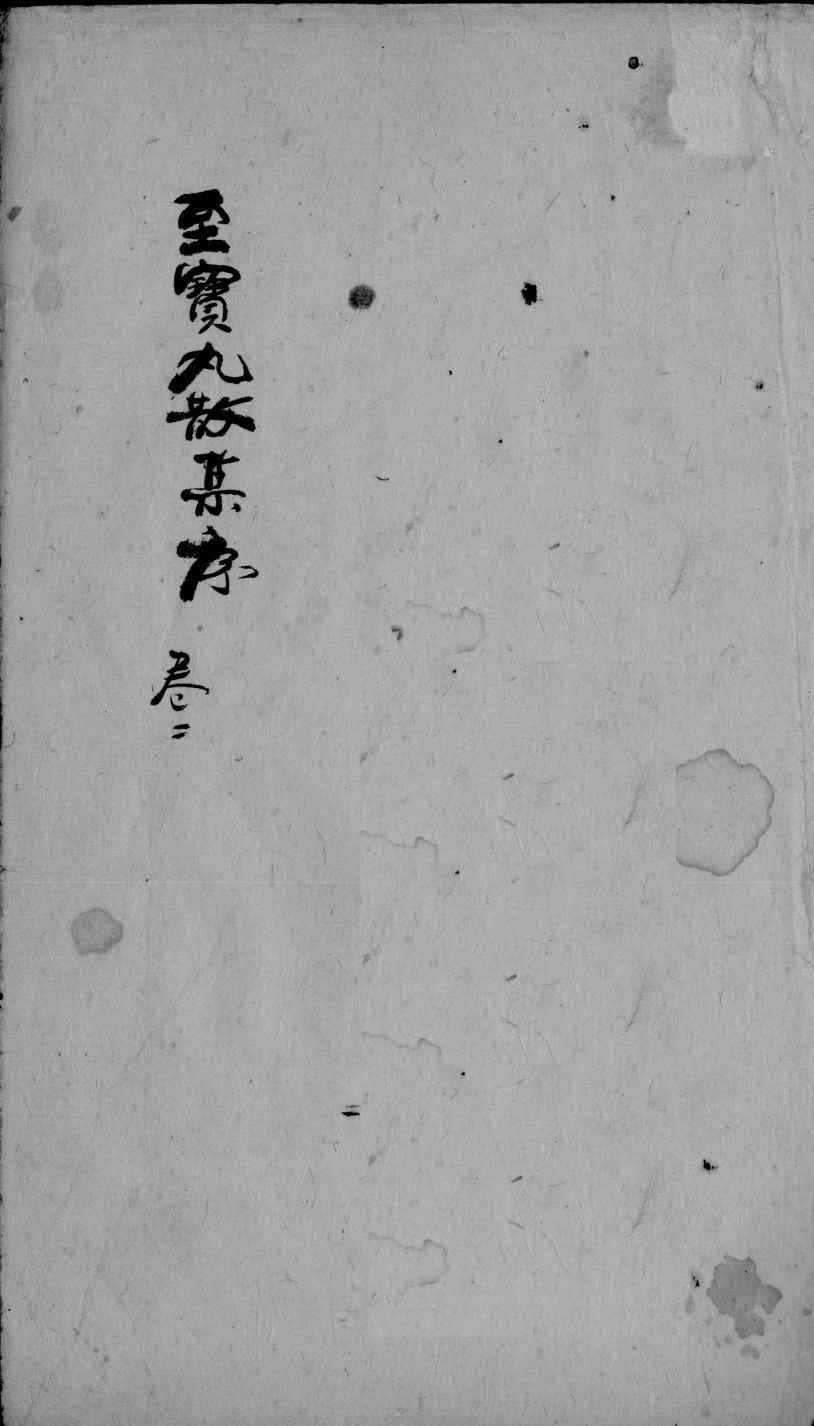 至寶丸散集
卷二